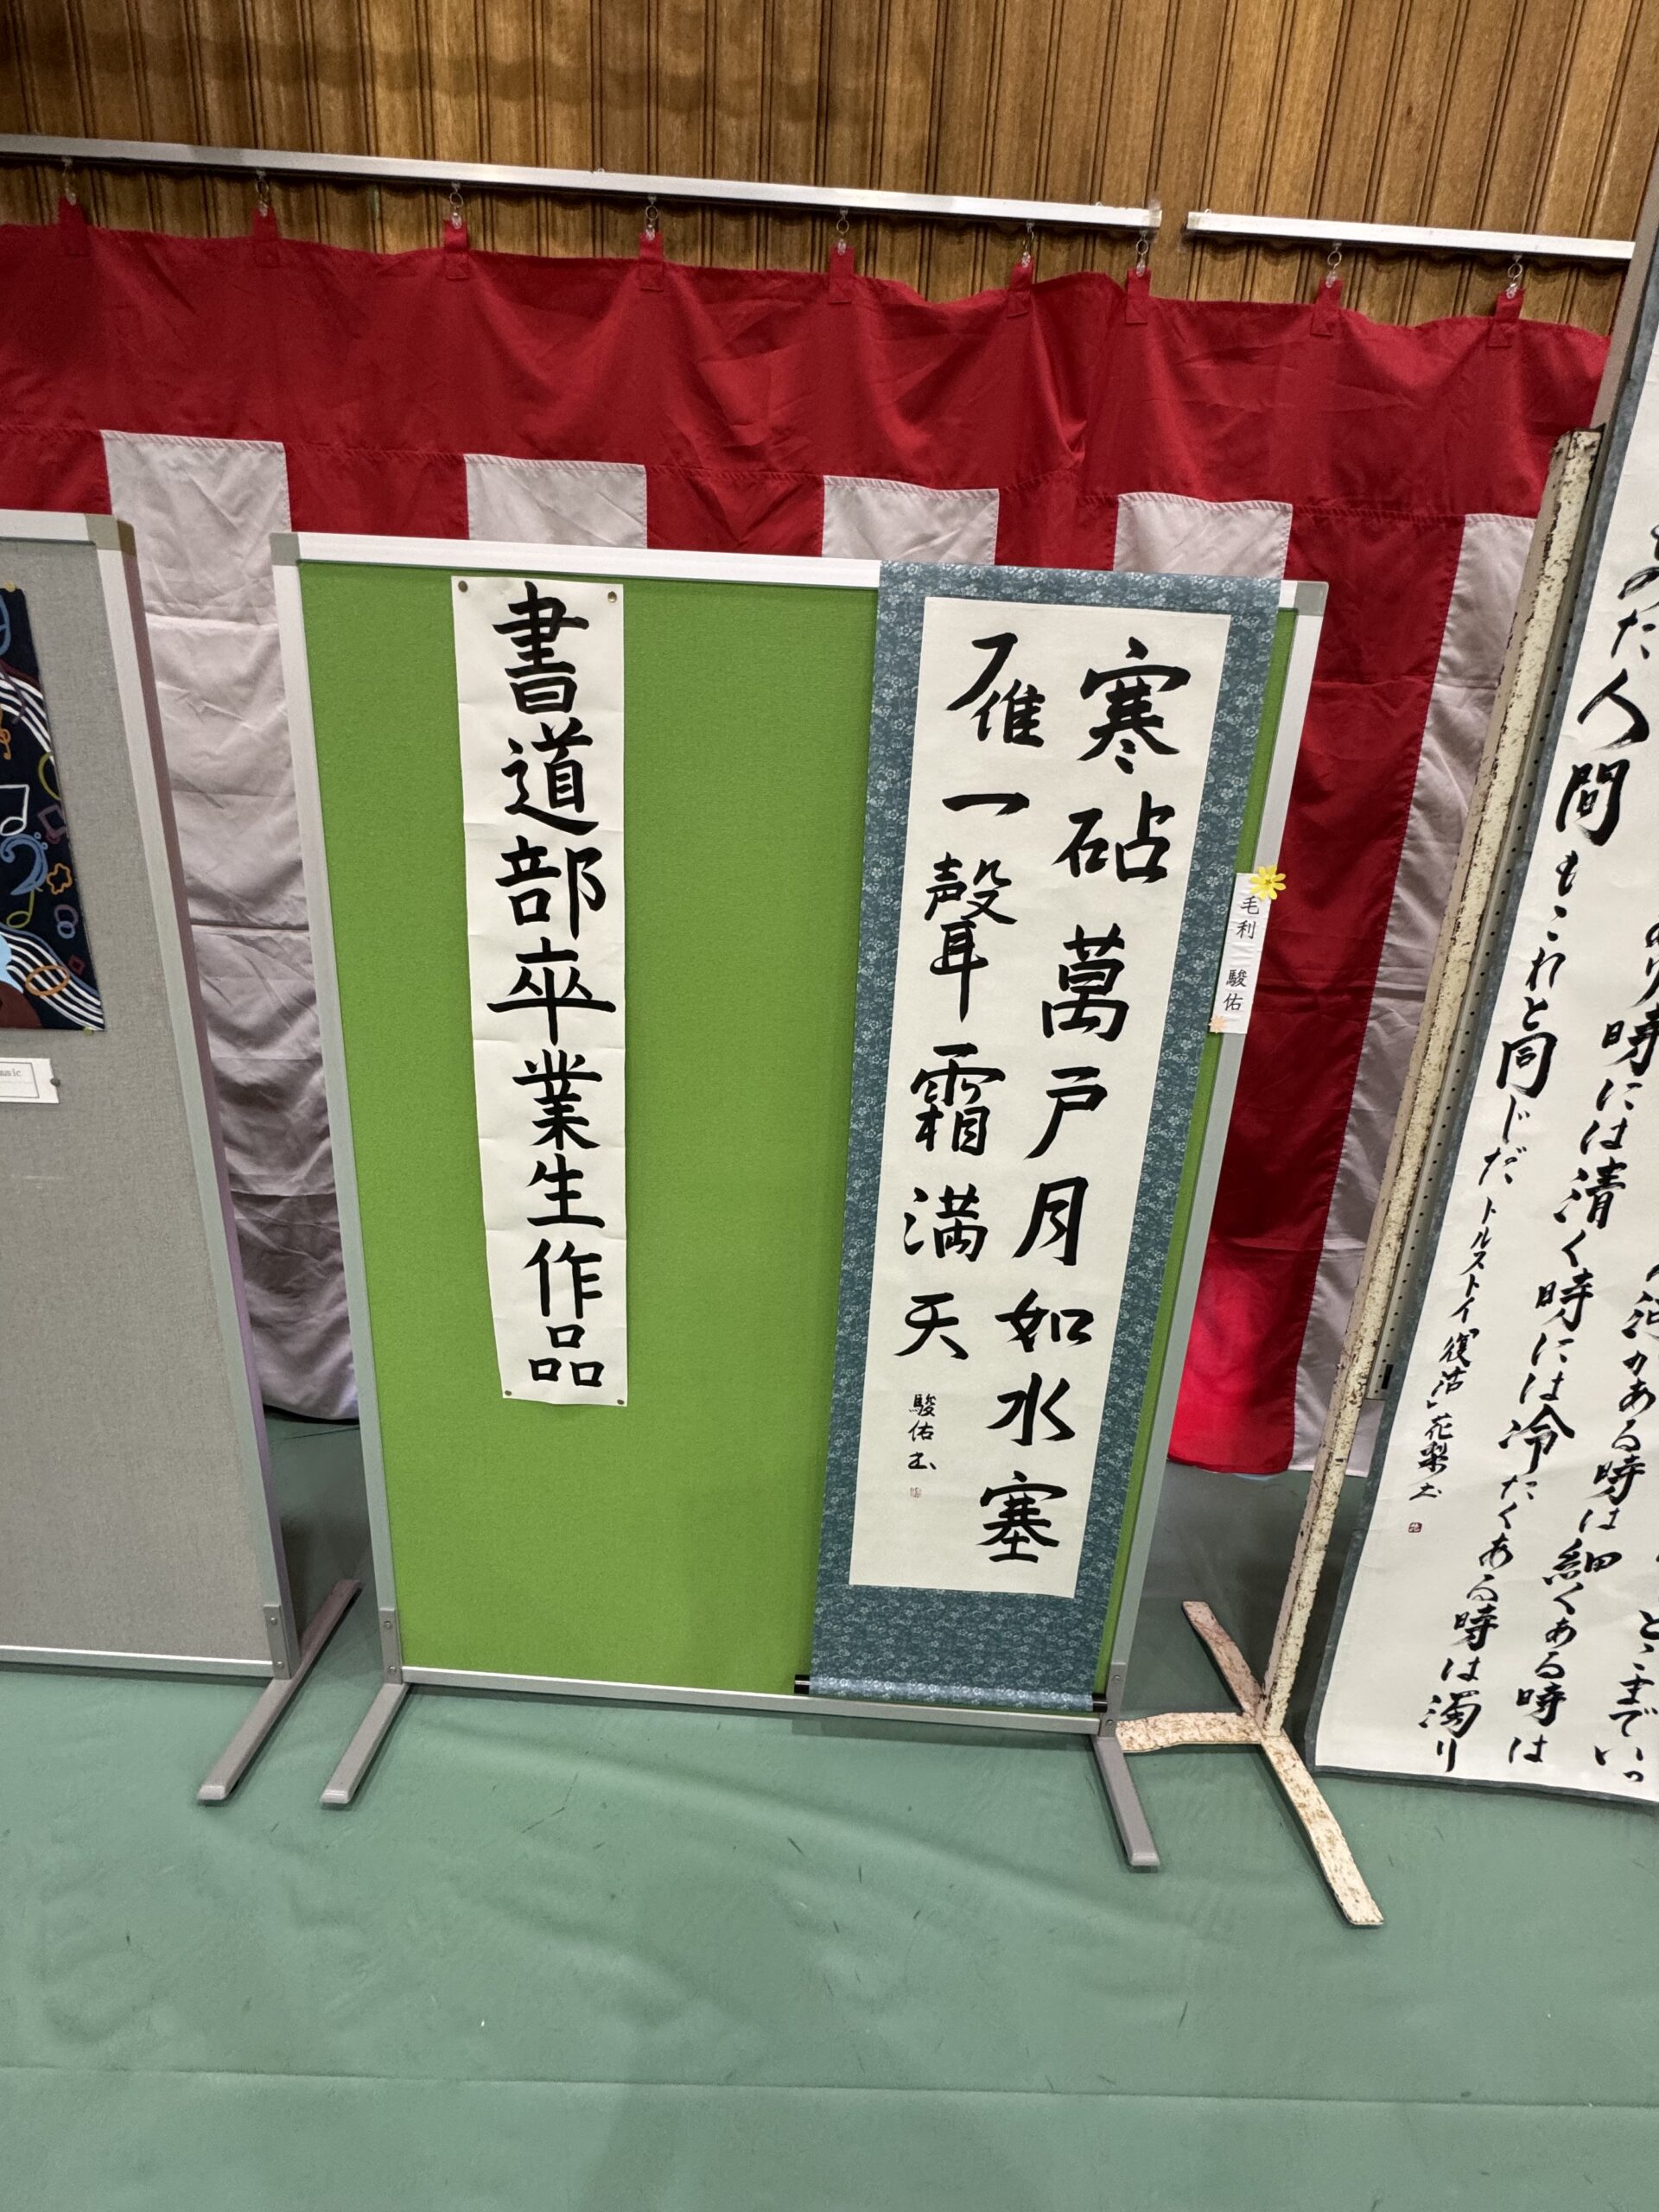 書道部卒業生作品
寒砧萬戸月如水塞
雁一聲霜満天
駿佑书
毛利 駿佑
あり時には清く時には冷たくある時は濁り
みた人間もこれと同じだ トルストイ「復活」花梨书
河がある時は細くある時は
とゝまでいっ
music